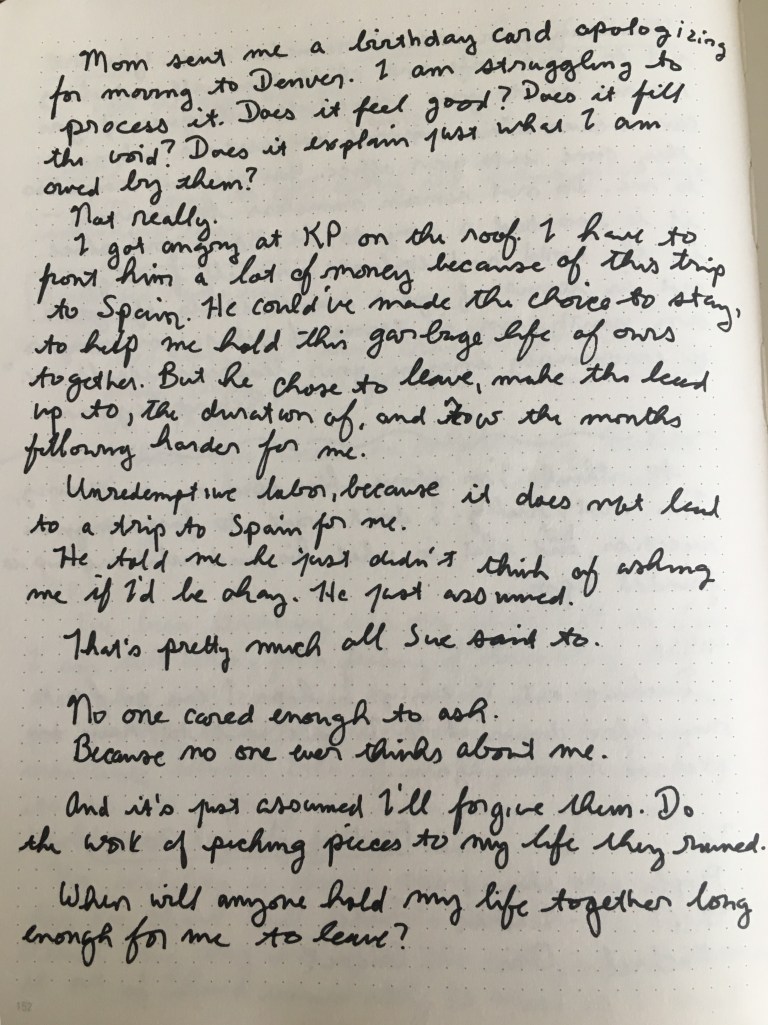 Mom sent me a birthday card apologizing
for moving to Denver. I am struggling to
process it. Does it feel good? Does it fill
the void? Does it explain just what I am
owed by them?
Not really.
I got angry at KP on the roof. I have to
front him a lot of money because of this trip
to Spain. He could've made the choice to stay,
to help me hold this garbage life of ours
together. But he chose to leave, make the lead
up to, the duration of, and now the months
following harder for me.
Unredemptive labor, because it does not lead
to a trip to Spain for me.
He told me he just didn't think of asking
me if I'd be okay. He just assumed.
That's pretty much all Sue said to.
No one cared enough to ask.
Because no one ever thinks about me.
And it's just assumed I'll forgive them. Do
the work of picking pieces to my life they ruined.
When will anyone hold my life together long
enough for me to leave?
182